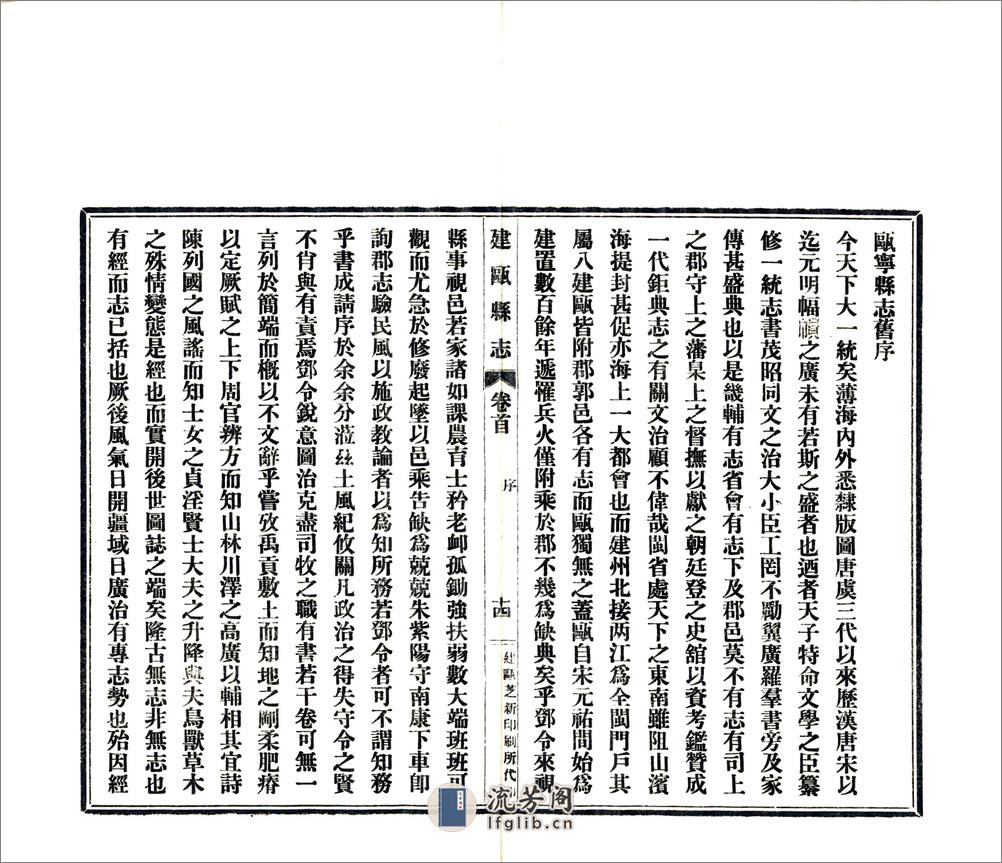 甌寧縣志舊序
今天下大一統矣薄海內外悉隸版圖唐虞三代以來歷漢唐宋以
迄元明幅𢄙之廣未有若斯之盛者也迺者天子特命文學之臣纂
修一統志書茂昭同文之治大小臣工罔不勵翼廣羅羣書旁及家
傳甚盛典也以是畿輔有志省會有志下及郡邑莫不有志有司上
之郡守上之藩臬上之督撫以獻之朝廷登之史舘以資考鑑贊成
一代鉅典志之有關文治顧不偉哉閩省處天下之東南雖阻山濱
海提封甚促亦海上一大都會也而建州北接两江爲全閩門戶其
屬八建甌皆附郡郭邑各有志而甌獨無之蓋甌自宋元祐間始爲
建置數百餘年遞罹兵火僅附乘於郡不幾爲缺典矣乎鄧令來視
建甌縣志
卷首
序
十四
建甌芝新印刷所代
縣事視邑若家諸如課農育士矜老衈孤鋤強扶弱數大端班班可
觀而尤急於修廢起墜以邑乘告缺爲兢兢朱紫陽守南康下車卽
詢郡志驗民風以施政教論者以爲知所務若鄧令者可不謂知務
乎書成請序於余余分蒞兹土風紀攸關凡政治之得失守令之賢
不肖與有責焉鄧令銳意圖治克盡司牧之職有書若干卷可無一
言列於簡端而槪以不文辭乎嘗攷禹貢敷土而知地之剛柔肥瘠
以定厥賦之上下周官辨方而知山林川澤之高廣以輔相其宜詩
陳列國之風謠而知士女之貞淫賢士大夫之升降與夫鳥獸草木
之殊情變態是經也而實開後世圖誌之端矣隆古無志非無志也
有經而志已括也厥後風氣日開疆域日廣治有專志勢也殆因經
流芳阁
lfglib.cn